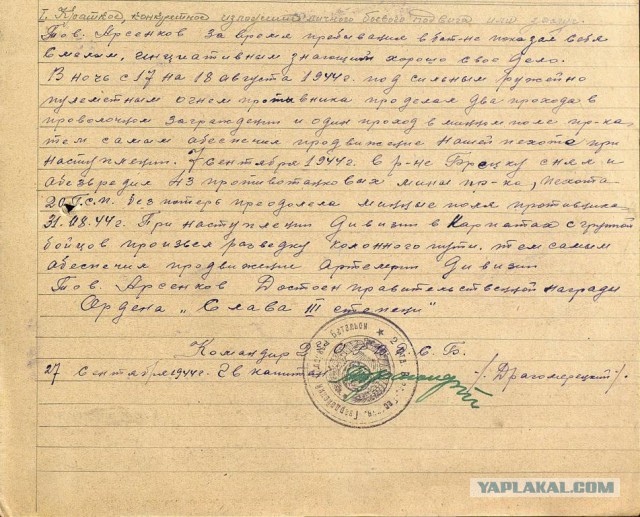 I. Краткое, конкретное изложение личного боевого подвига или заслуг.
Тов. Арсенков за время пребывания в бат-не показал себя
смелым, инициативным знающим хорошо свое дело.
В ночь с 17 на 18 августа 1944г. под сильным ружейно
пулеметным огнем противника проделал два прохода в
проволочном заграждении и один проход в минном поле пр-ка
тем самым обеспечил продвижение нашей пехоты при
наступлении. 7 сентября 1944г. в р-не снял и
обезвредил 43 противотанковых мины пр-ка, пехота
20 Г.С.П. без потерь преодолела минные поля противника
31.08.44г. При наступлении Дивизии в Карпатах с группой
бойцов произвел разведку колонного пути, тем самым
обеспечил продвижение Артелерии Дивизии
Тов. Арсенков Достоен правительственной награды
Ордена „Слава III степени"
Командир 2 С. Б.
27 сентября 1944г. Гв капитан /Драгомерецкий/.
Батальон
YAPLAKAL.COM